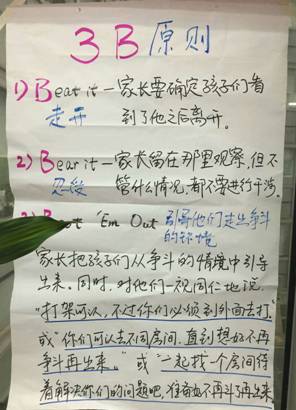 3B原则
1) Beat it — 家长要确定孩子们看
走开 到了他之后离开。
2) Bear it — 家长留在那里观察,但不
忍受 管什么情况都不要进行干涉。
'Em Out 引导他们走出争斗
的环境
家长把孩子们从争斗的情境中引导
出来。同时,对他们一视同仁地说,
"打架可以,不过你们必须到外面去打。"
或"你们可以去不同房间,直到想好不再
争斗再出来。"或"一起找个房间待
着解决你们的问题吧,准备好不再斗再出来